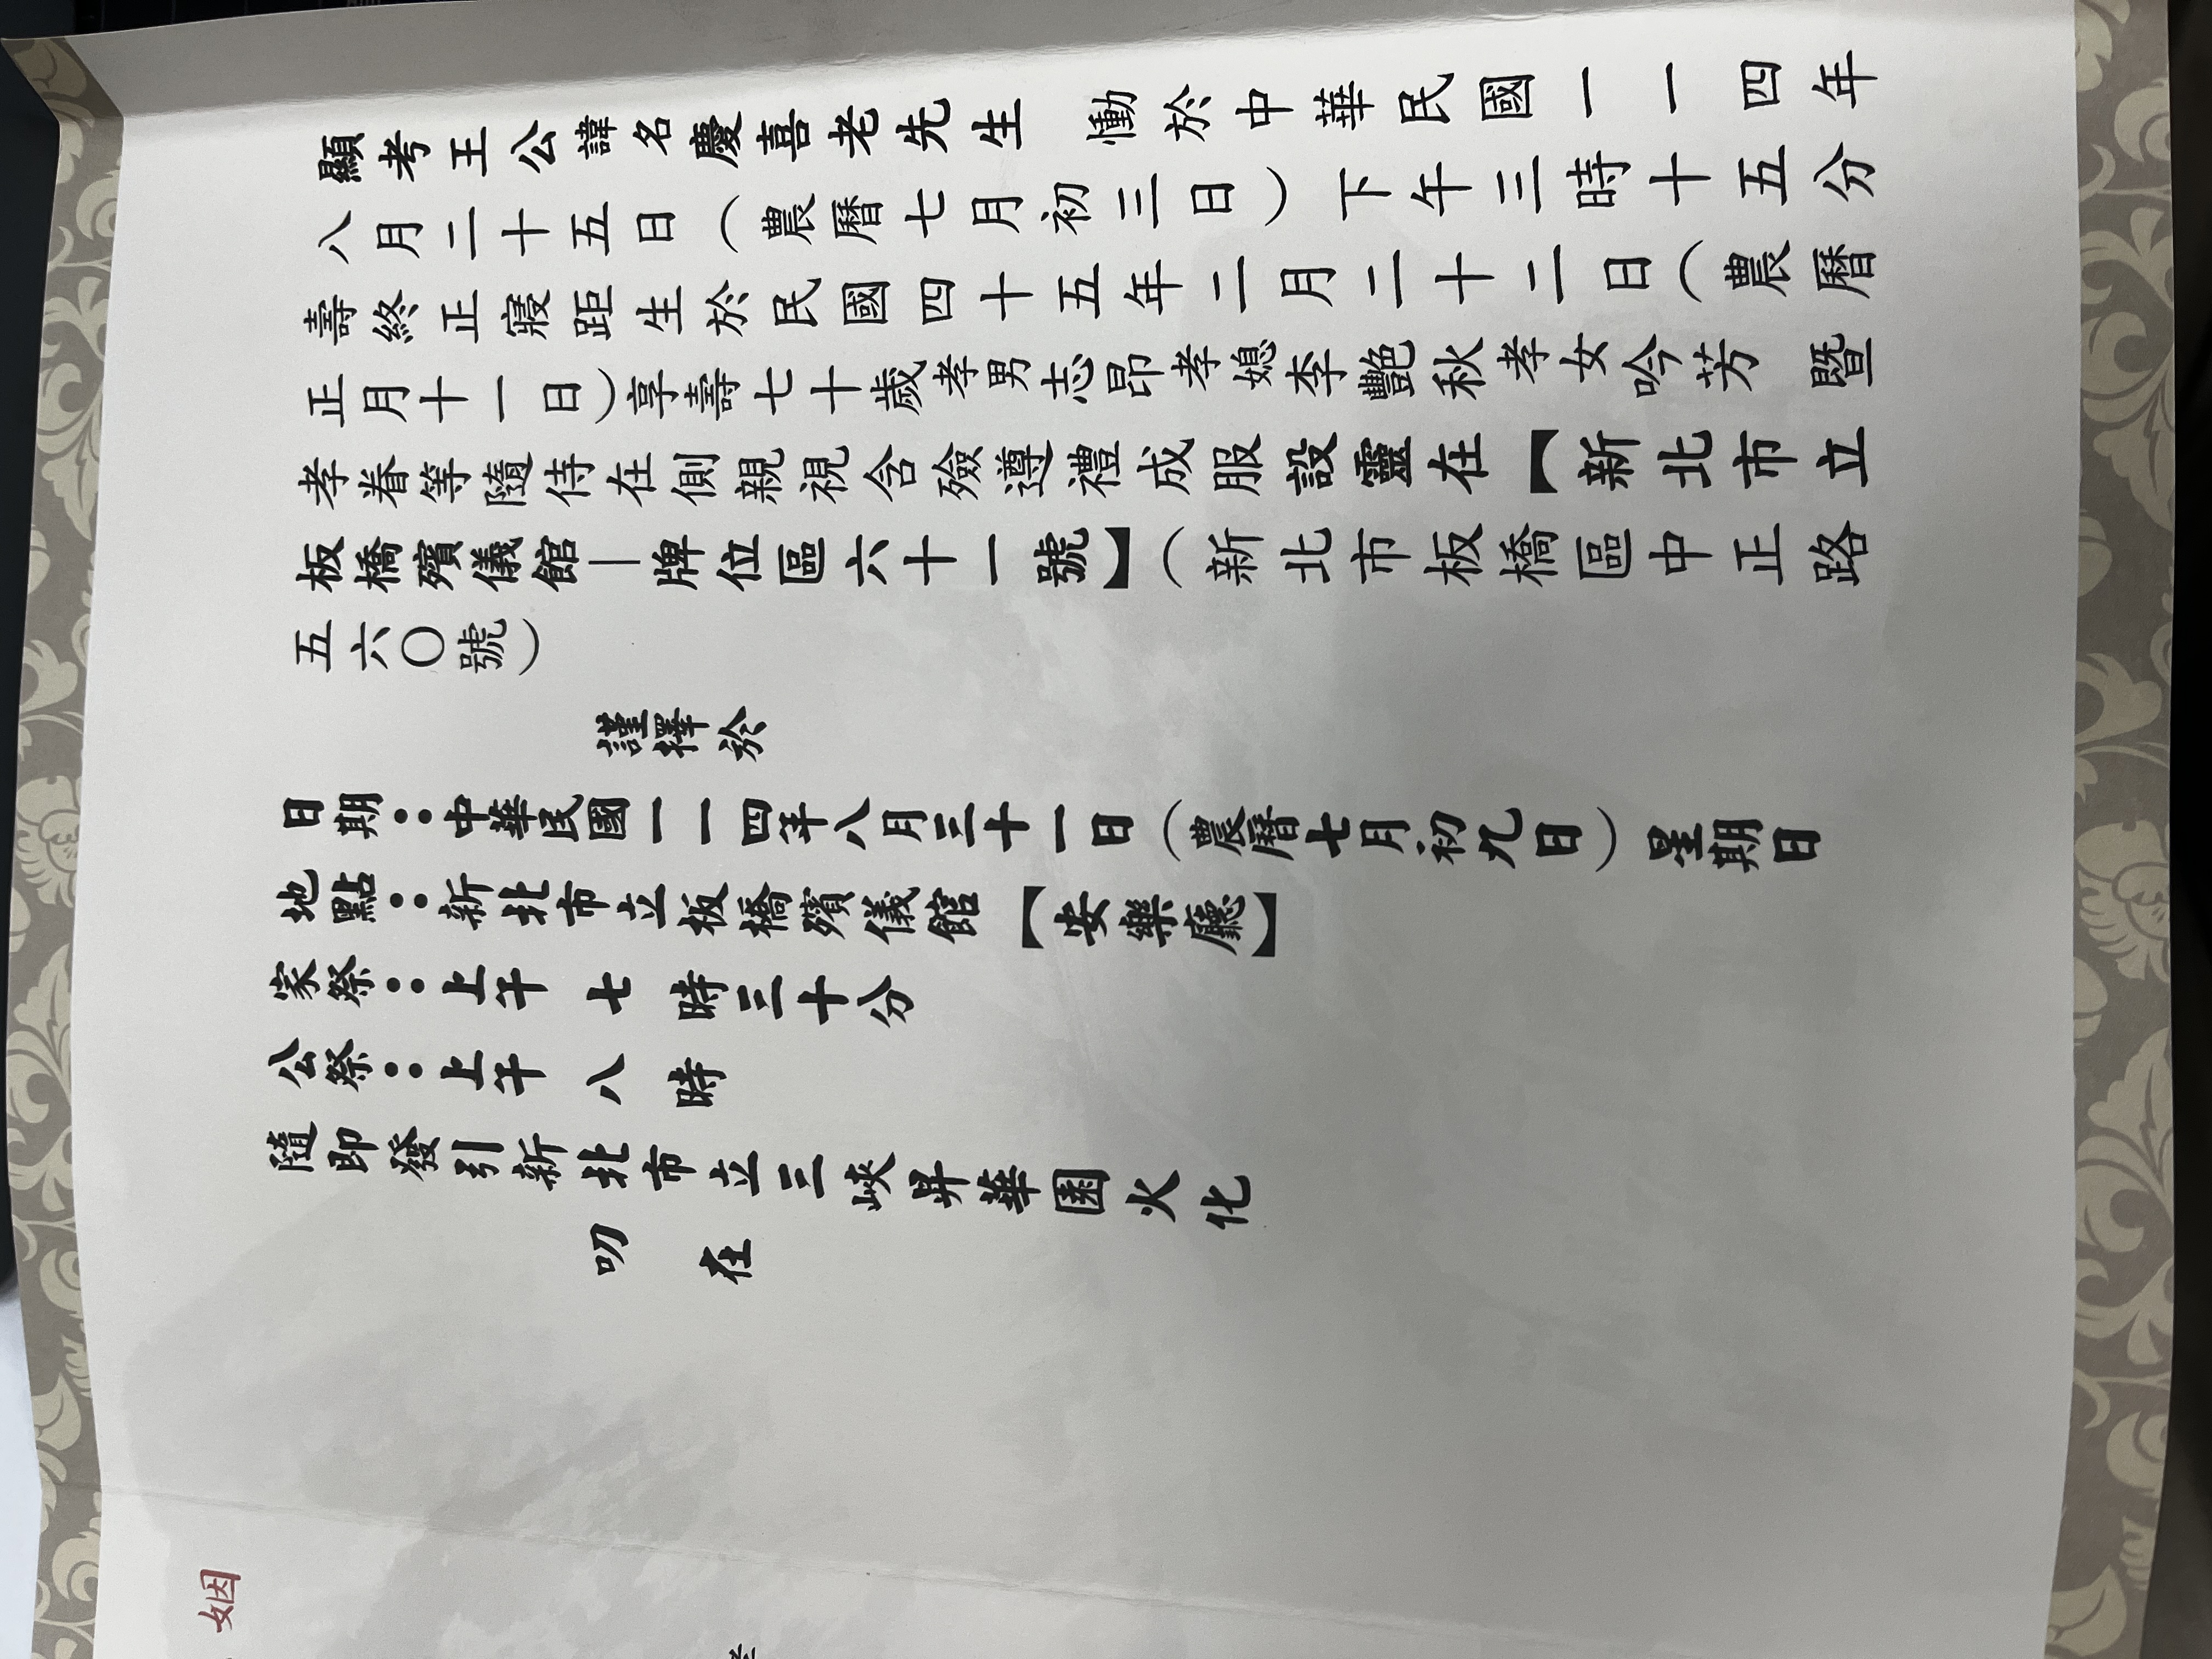 顯考王公諱名慶喜老先生 慟於中華民國一一四年
八月二十五日(農曆七月初三日)下午三時十五分
壽終正寢距生於民國四十五年二月二十二日(農曆
正月十一日)享壽七十歲孝男志昂孝媳李艷秋孝女吟芳 暨
孝眷等隨侍在側親視含殮遵禮成服設靈在【新北市立
板橋殯儀館—牌位區六十一號】(新北市板橋區中正路
五六〇號)
謹擇於
日期:中華民國一一四年八月三十一日(農曆七月初九日)星期日
地點:新北市立板橋殯儀館【安樂廳】
家祭:上午 七 時三十分
公祭:上午 八 時
隨即發引新北市立三峽昇華園火化
叨 在
姻